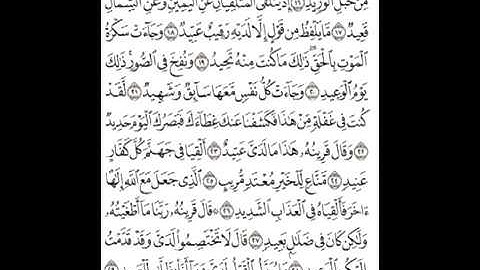 مِنْ حَبْلِ ٱلْوَرِيدِ ۝١٦ إِذْ يَتَلَقَّى ٱلْمُتَلَقِّيَانِ عَنِ ٱلْيَمِينِ وَعَنِ ٱلشِّمَالِ
قَعِيدٌ ۝١٧ مَّا يَلْفِظُ مِن قَوْلٍ إِلَّا لَدَيْهِ رَقِيبٌ عَتِيدٌ ۝١٨ وَجَآءَتْ سَكْرَةُ
ٱلْمَوْتِ بِٱلْحَقِّ ذَٰلِكَ مَا كُنتَ مِنْهُ تَحِيدُ ۝١٩ وَنُفِخَ فِى ٱلصُّورِ ذَٰلِكَ
يَوْمُ ٱلْوَعِيدِ ۝٢٠ وَجَآءَتْ كُلُّ نَفْسٍ مَّعَهَا سَآئِقٌ وَشَهِيدٌ ۝٢١ لَّقَدْ
كُنتَ فِى غَفْلَةٍ مِّنْ هَٰذَا فَكَشَفْنَا عَنكَ غِطَآءَكَ فَبَصَرُكَ ٱلْيَوْمَ حَدِيدٌ
۝٢٢ وَقَالَ قَرِينُهُۥ هَٰذَا مَا لَدَىَّ عَتِيدٌ ۝٢٣ أَلْقِيَا فِى جَهَنَّمَ كُلَّ كَفَّارٍ
عَنِيدٍ ۝٢٤ مَّنَّاعٍ لِّلْخَيْرِ مُعْتَدٍ مُّرِيبٍ ۝٢٥ ٱلَّذِى جَعَلَ مَعَ ٱللَّهِ إِلَٰهًا
ءَاخَرَ فَأَلْقِيَاهُ فِى ٱلْعَذَابِ ٱلشَّدِيدِ ۝٢٦ ۞ قَالَ قَرِينُهُۥ رَبَّنَا مَآ أَطْغَيْتُهُۥ
وَلَٰكِن كَانَ فِى ضَلَٰلٍۭ بَعِيدٍ ۝٢٧ قَالَ لَا تَخْتَصِمُوا۟ لَدَىَّ وَقَدْ قَدَّمْتُ